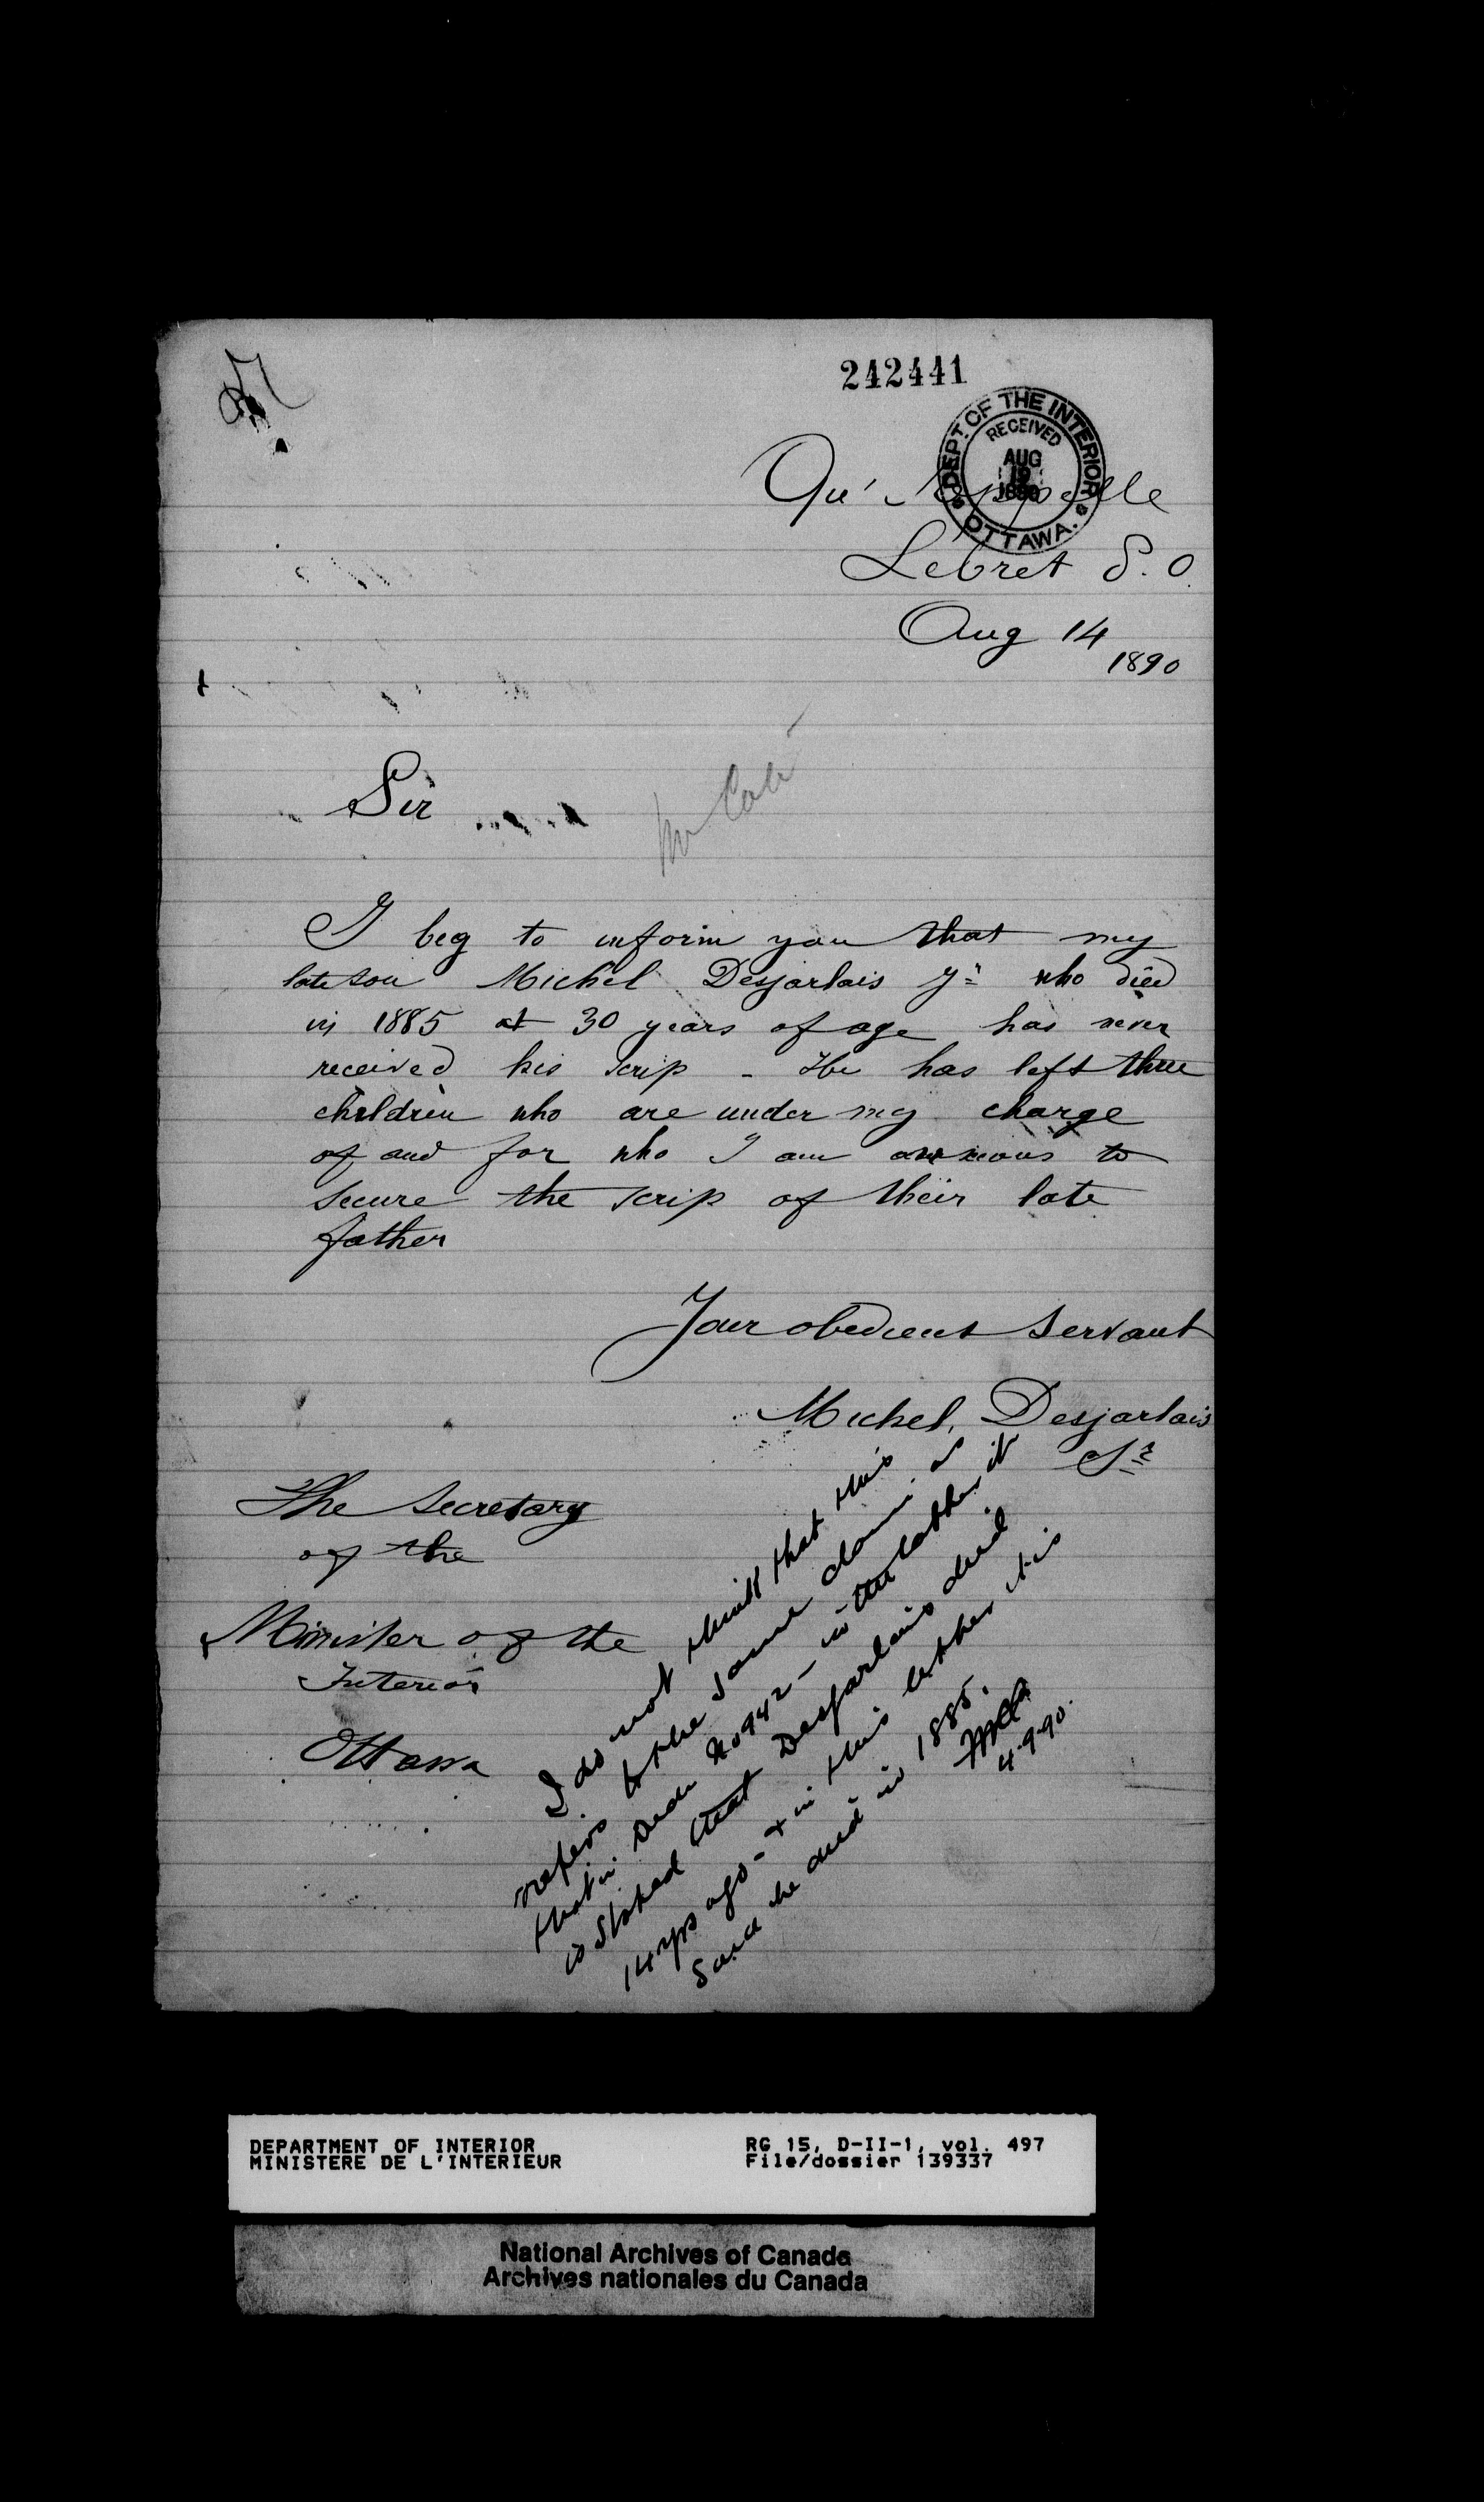 242441
DEPT. OF THE INTERIOR
RECEIVED
AUG
19
1890
OTTAWA.
Qu'Appelle
Lebret P.O.
Aug 14
1890
Sir
I beg to inform you that my
late son Michel Desjarlais Jr who died
in 1885 at 30 years of age has never
received his scrip - He has left three
children who are under my charge
of and for who I am anxious to
secure the scrip of their late
father
Your obedient servant
Michel, Desjarlais
Sr
The Secretary
of the
Minister of the
Interior
Ottawa
I do not think that this
refers to the same claim as
that in No 942 - in the latter it
is stated that Desjarlais died
14 yrs ago - + in this letter it is
said he died in 1885.
4.9.90.
DEPARTMENT OF INTERIOR
MINISTERE DE L'INTERIEUR
RG 15, D-II-1, vol. 497
File/dossier 139337
National Archives of Canada
Archives nationales du Canada